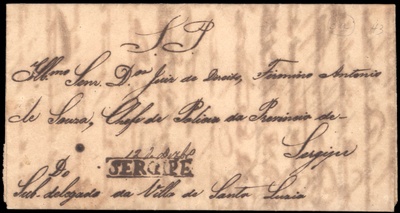 S P
Illmo Senr. Dor Juiz de Direito, Firmino Antonio
de Souza, Chefe de Policia da Provincia de
Sergipe
SERGIPE
Do
Sub-delegado da Villa de Santa Luzia